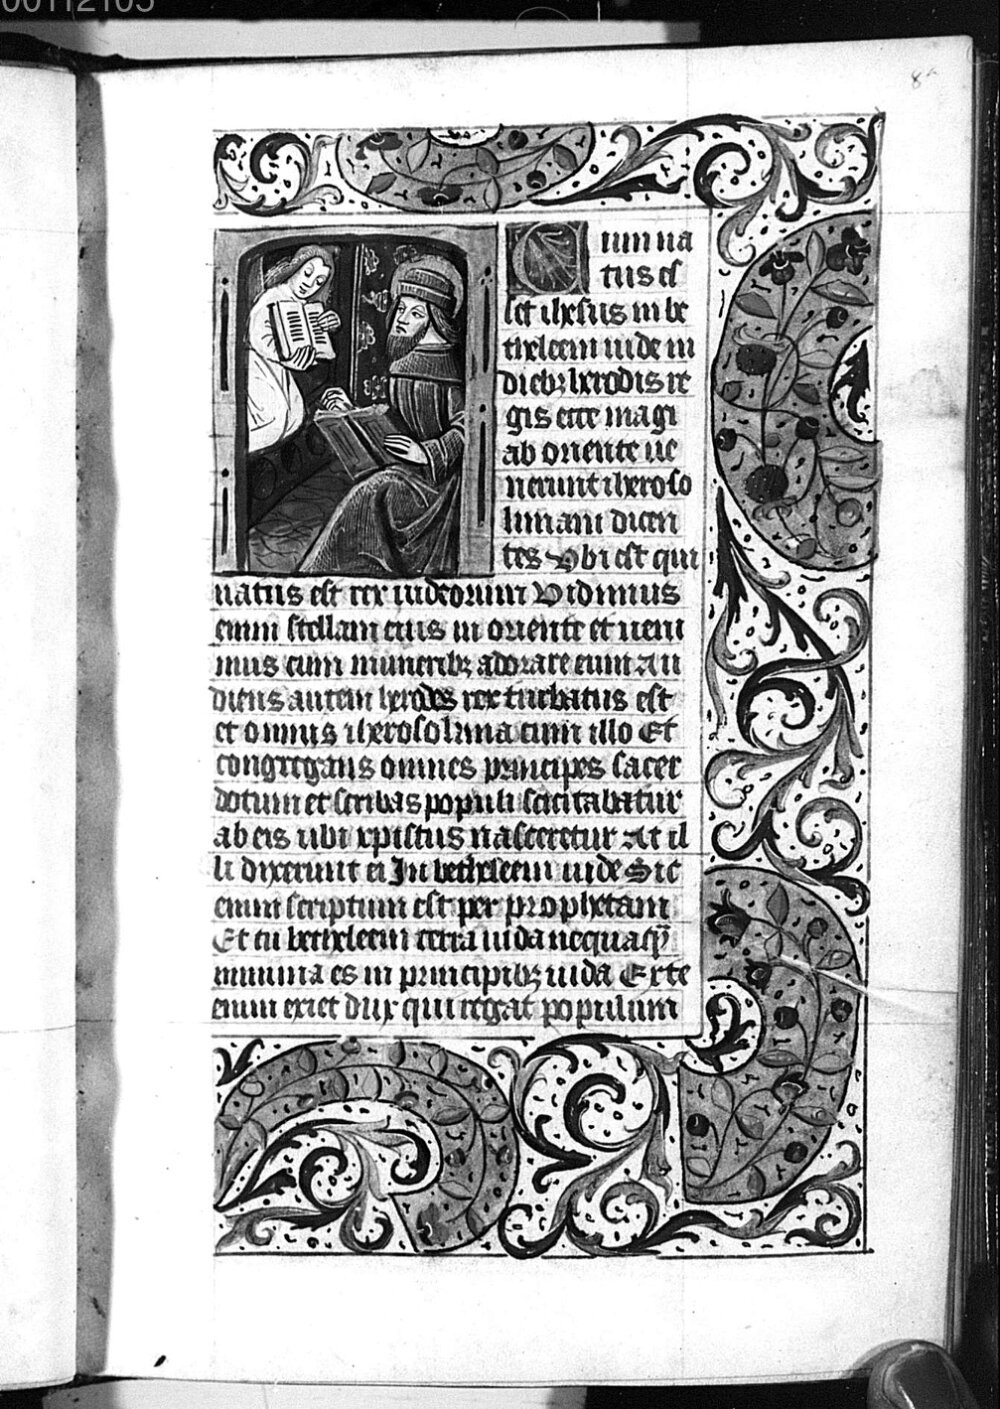 00112105
8
Cum na
tus es
set ihesus in be
theleem iude in
diebꝫ herodis re
gis ecce magi
ab oriente ue
nerunt iheroso
limam dicen
tes Vbi est qui
natus est rex iudeorum Vidimus
enim stellam eius in oriente et ueni
mus cum muneribꝫ adorare eum Au
diens autem herodes rex turbatus est
et omnis iherosolima cum illo Et
congregans omnes principes sacer
dotum et scribas populi sciscitabatur
ab eis ubi xpistus nasceretur At il
li dixerunt ei In bethleem iude Sic
enim scriptum est per prophetam
Et tu bethleem terra iuda nequaqꝫ
minima es in principibꝫ iuda Exte
enim exiet dux qui regat populum